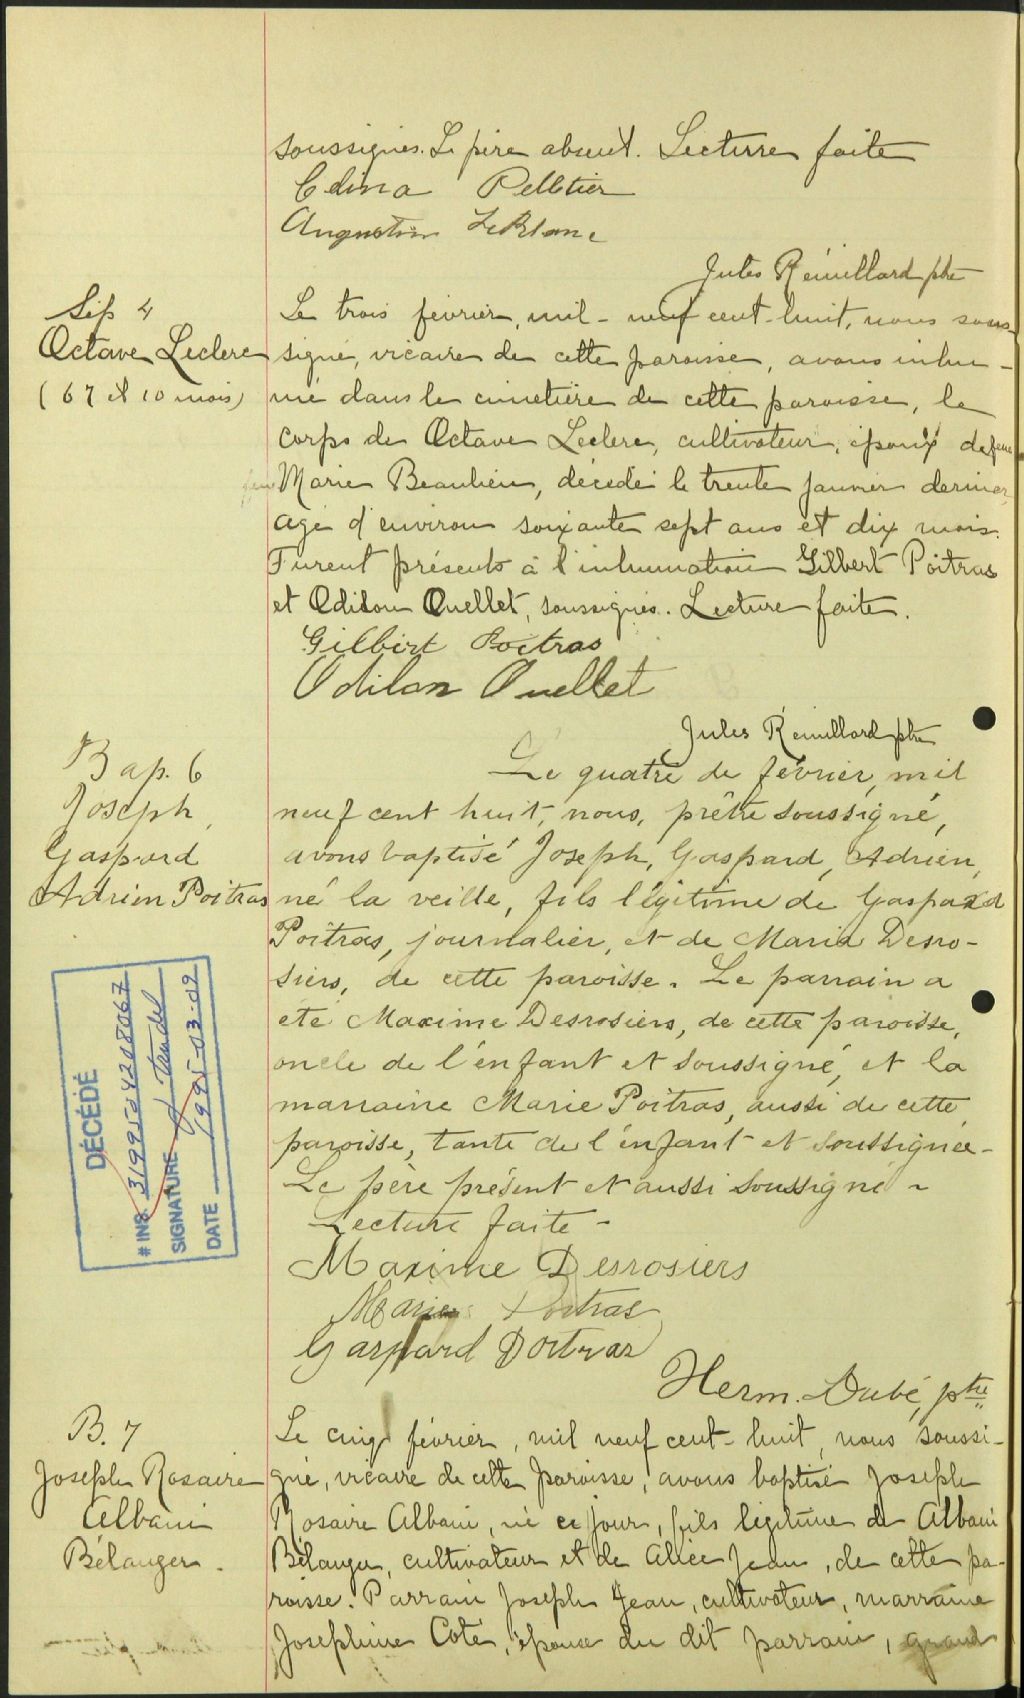 soussignés. Le père absent. Lecture faite
Célina Pelletier
Augustin LeBlanc
Jules Rémillard ptre
Sép 4
Octave Leclerc
(67 et 10 mois)
Le trois février, mil-neuf cent-huit, nous sous-
signé, vicaire de cette paroisse, avons inhu-
mé dans le cimetière de cette paroisse, le
corps de Octave Leclerc, cultivateur, époux de feue
Marie Beaulieu, décédé le trente janvier dernier,
agé d'environ soixante sept ans et dix mois.
Furent présents à l'inhumation Gilbert Poitras
et Odilon Ouellet, soussignés. Lecture faite.
Gilbert Poitras
Odilon Ouellet
Jules Rémillard ptre
Bap. 6
Joseph,
Gaspard
Adrien Poitras
Le quatre de février, mil
neuf cent huit, nous, prêtre soussigné,
avons baptisé Joseph, Gaspard, Adrien,
né la veille, fils légitime de Gaspard
Poitras, journalier, et de Maria Desro-
siers, de cette paroisse. Le parrain a
été Maxime Desrosiers, de cette paroisse,
oncle de l'enfant et soussigné, et la
marraine Marie Poitras, aussi de cette
paroisse, tante de l'enfant et soussignée-
Le père présent et aussi soussigné -
Lecture faite -
Maxime Desrosiers
Marie Poitras
Gaspard Poitras
Herm. Dubé, ptre
DÉCÉDÉ
# INS. 3199504208067
SIGNATURE
DATE 1995-03-09
B. 7
Joseph Rosaire
Albani
Bélanger.
Le cinq février, mil neuf cent-huit, nous soussi-
gné, vicaire de cette paroisse, avons baptisé Joseph
Rosaire Albani, né ce jour, fils légitime de Albani
Bélanger, cultivateur et de Alice Jean, de cette pa-
roisse. Parrain Joseph Jean, cultivateur, marraine
Josephine Coté, épouse du dit parrain, grand